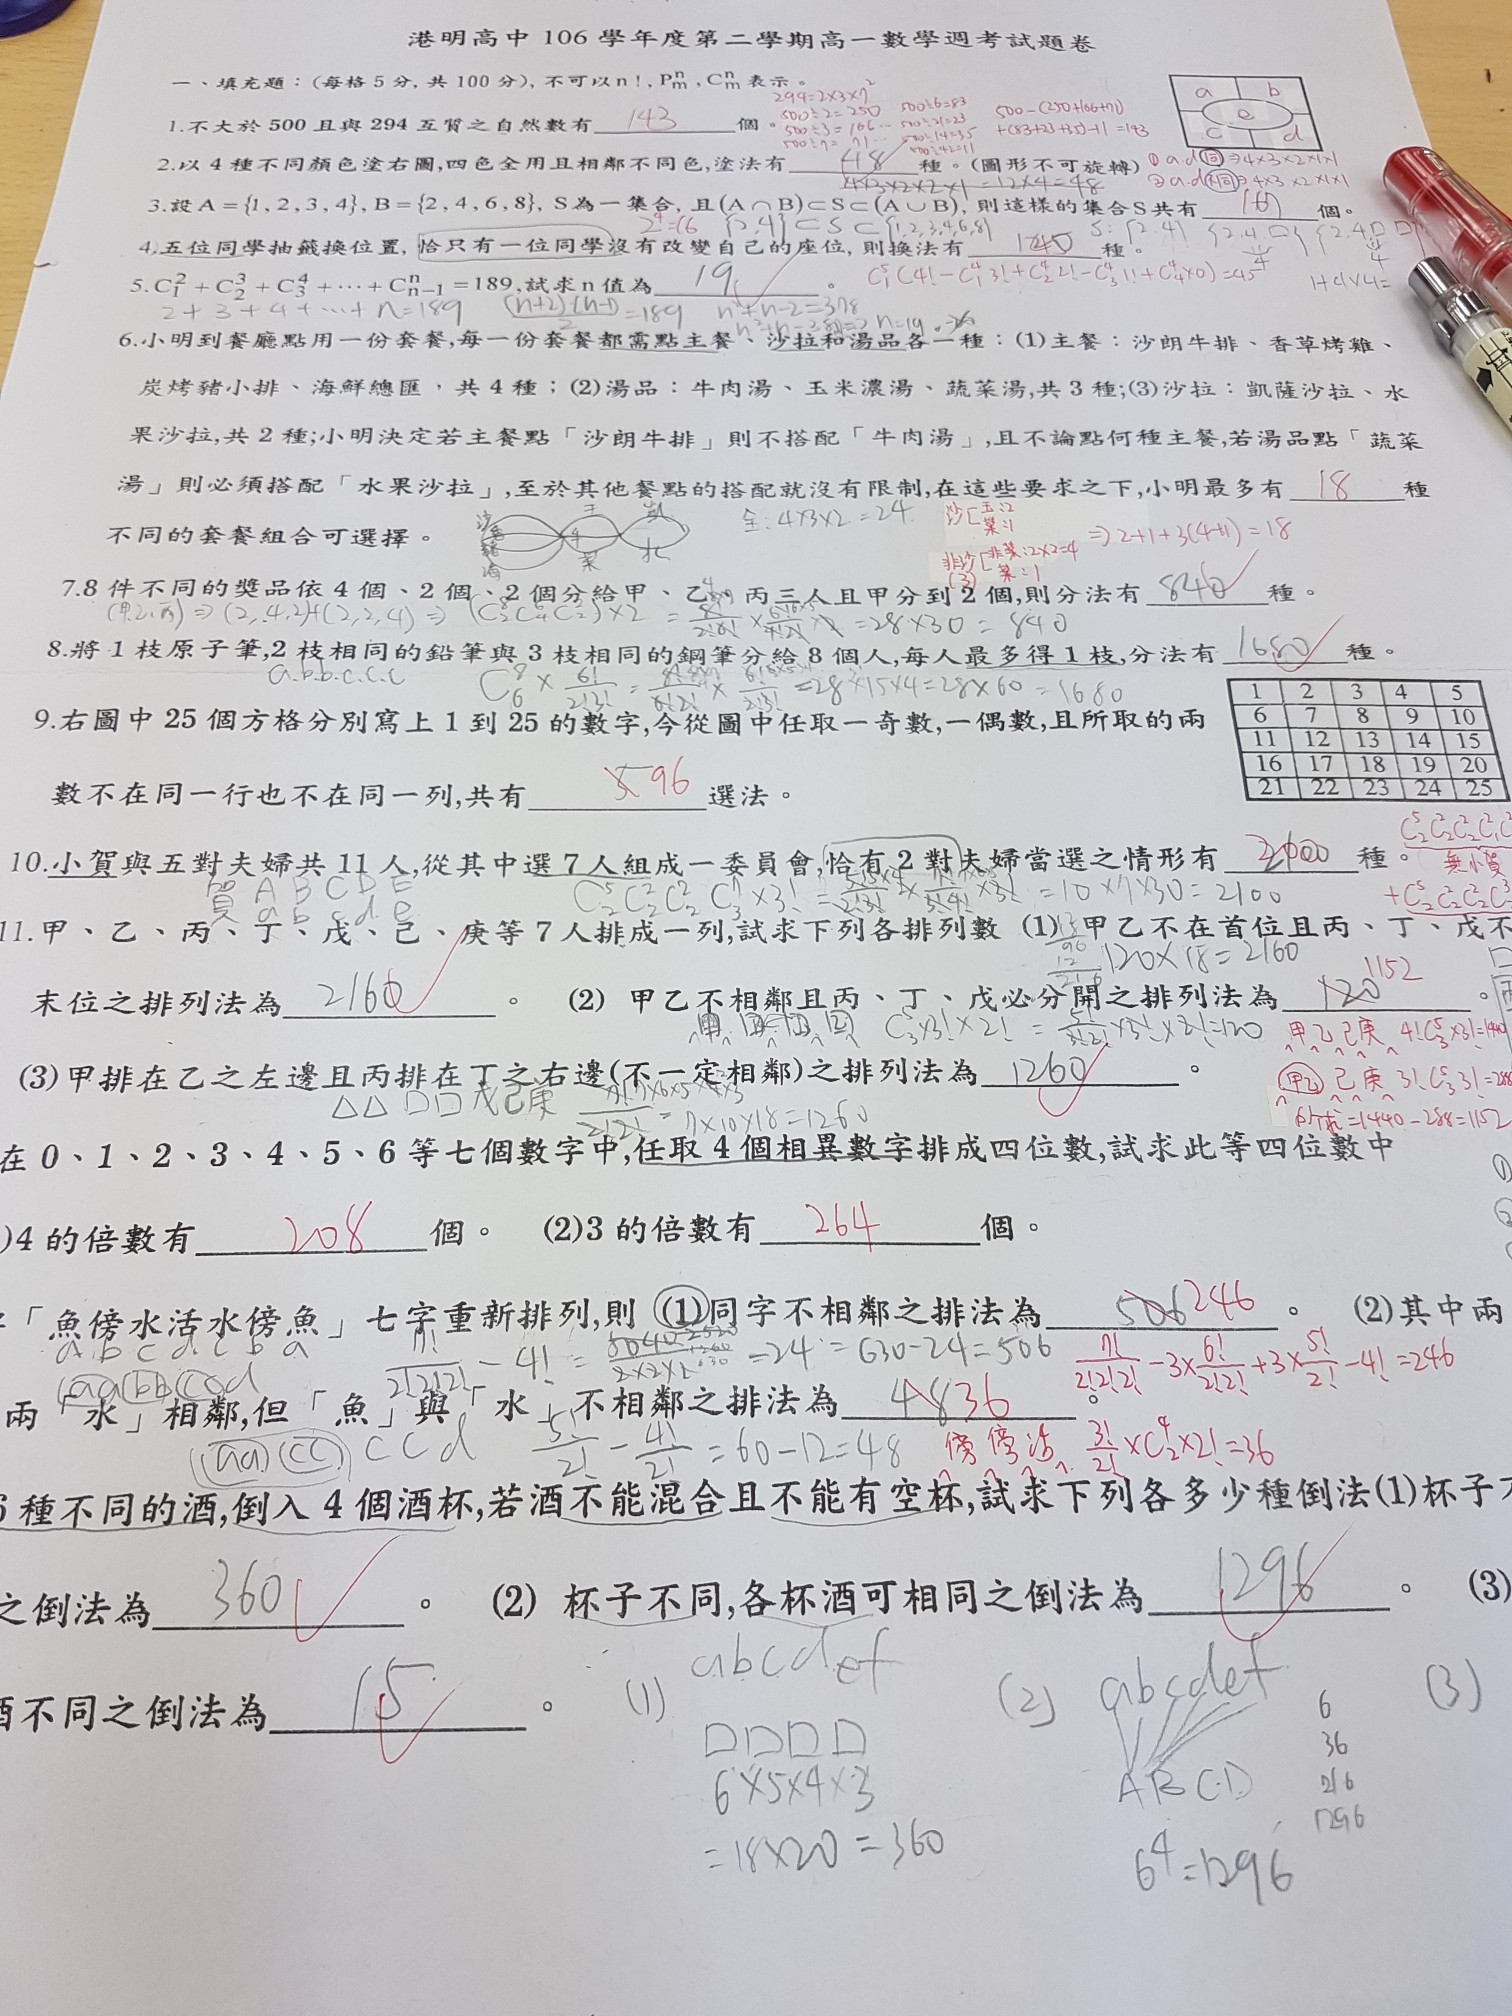 港明高中 106 學年度第二學期高一數學週考試題卷
一、填充題：(每格 5 分, 共 100 分), 不可以 n!, P^n_m, C^n_m 表示。
294=2×3×7²
500÷2=250
500÷3=166…
500÷7=71…
500÷6=83
500÷21=23
500÷14=35
500÷42=11
500-(250+166+71)
+(83+23+35)-11=143
a b
e
c d
1.不大於 500 且與 294 互質之自然數有 143 個。
2.以 4 種不同顏色塗右圖,四色全用且相鄰不同色,塗法有 48 種。(圖形不可旋轉)
4×3×2×2×1=12×4=48
① a.d 同 ⇒4×3×2×1×1
② a.d 不同 ⇒4×3×2×1×1
3.設 A={1, 2, 3, 4}, B={2, 4, 6, 8}, S 為一集合, 且(A∩B)⊂S⊂(A∪B), 則這樣的集合 S 共有 16 個。
2⁴=16 {2,4}⊂S⊂{1,2,3,4,6,8} S:{2,4} {2,4,□} {2,4,□,□}
4.五位同學抽籤換位置, 恰只有一位同學沒有改變自己的座位, 則換法有 種。
C^5_1(4!-C^4_1 3!+C^4_2 2!-C^4_3 1!+C^4_4×0!)=45
1+4+4=
5.C^2_1+C^3_2+C^4_3+⋯+C^n_{n-1}=189,試求 n 值為 19 。
2+3+4+…+n=189 (n+2)(n-1)/2=189 n²+n-2=378
n²+n-380=0 n=19
6.小明到餐廳點用一份套餐,每一份套餐都需點主餐、沙拉和湯品各一種：(1)主餐：沙朗牛排、香草烤雞、
炭烤豬小排、海鮮總匯，共 4 種；(2)湯品：牛肉湯、玉米濃湯、蔬菜湯,共 3 種;(3)沙拉：凱薩沙拉、水
果沙拉,共 2 種;小明決定若主餐點「沙朗牛排」則不搭配「牛肉湯」,且不論點何種主餐,若湯品點「蔬菜
湯」則必須搭配「水果沙拉」,至於其他餐點的搭配就沒有限制,在這些要求之下,小明最多有 18 種
不同的套餐組合可選擇。
全:4×3×2=24
沙[玉:2 菜:1
非沙(3)[非菜:2×2=4 菜:1
⇒2+1+3(4+1)=18
7.8 件不同的獎品依 4 個、2 個、2 個分給甲、乙、丙三人且甲分到 2 個,則分法有 840 種。
(甲,乙,丙)⇒(2,4,2)+(2,2,4)⇒(C^8_2C^6_4C^2_2)×2 = 8!/2!6!×6!/4!2!×2=28×30=840
8.將 1 枝原子筆,2 枝相同的鉛筆與 3 枝相同的鋼筆分給 8 個人,每人最多得 1 枝,分法有 1680 種。
a.b.b.c.c.c
C^8_6×6!/2!3!=8!/6!2!×6!/2!3!=28×15×4=28×60=1680
9.右圖中 25 個方格分別寫上 1 到 25 的數字,今從圖中任取一奇數,一偶數,且所取的兩
數不在同一行也不在同一列,共有 96 選法。
1 2 3 4 5
6 7 8 9 10
11 12 13 14 15
16 17 18 19 20
21 22 23 24 25
10.小賀與五對夫婦共 11 人,從其中選 7 人組成一委員會,恰有 2 對夫婦當選之情形有 種。
無小賀
賀 A B C D E
賀 a b c d e
C^5_2C^2_2C^2_2C^7_3×3! =10×7×30=2100
11.甲、乙、丙、丁、戊、己、庚等 7 人排成一列,試求下列各排列數 (1) 甲乙不在首位且丙、丁、戊不
120×18=2160
末位之排列法為 2160 。 (2) 甲乙不相鄰且丙、丁、戊必分開之排列法為 120 1152 。
C^5_3×3!×2! = 5!/3!2!×3!×2!=120
甲乙己庚 4!C^5_3×3!=1440
甲乙 己 庚 3!C^4_3 3!=288
所求=1440-288=1152
(3)甲排在乙之左邊且丙排在丁之右邊(不一定相鄰)之排列法為 1260 。
△△ □□ 戊己庚 =7×10×18=1260
在 0、1、2、3、4、5、6 等七個數字中,任取 4 個相異數字排成四位數,試求此等四位數中
)4 的倍數有 208 個。 (2)3 的倍數有 264 個。
「魚傍水活水傍魚」七字重新排列,則 (1)同字不相鄰之排法為 506 246 。 (2)其中兩
a b c d c b a
aa bb cc d
7!/2!2!2!-4! = 5040/2×2×2 -24=630-24=506
7!/2!2!2!-3×6!/2!2!+3×5!/2!-4!=246
兩「水」相鄰,但「魚」與「水」不相鄰之排法為 48 36 。
5!/2!-4!/2!=60-12=48
傍傍活 3!/2!×C^4_2×2!=36
6 種不同的酒,倒入 4 個酒杯,若酒不能混合且不能有空杯,試求下列各多少種倒法(1)杯子不
之倒法為 360 。 (2) 杯子不同,各杯酒可相同之倒法為 1296 。 (3)
酒不同之倒法為 15 。
(1) abcdef
□□□□
6×5×4×3
=18×20=360
(2) abcdef
ABCD
6⁴=1296
6
36
216
1296
(3)